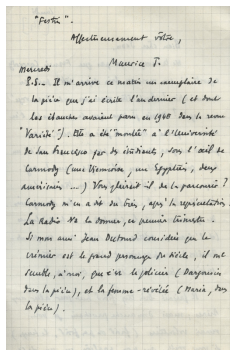 "Festin".
Affectueusement vôtre,
Maurice T.
Mercredi
P.S.. Il m'arrive ce matin un exemplaire de
la pièce que j'ai écrite l'an dernier (et dont
les ébauches avaient paru en 1948 dans la revue
"Variété"). Elle a été "montée" à l'Université
de San Francisco par des étudiants, sous l'œil de
Carmody (une Viennoise, un Egyptien, deux
américains ...) Vous plairait il de la parcourir?
Carmody m'en a dit du bien, après la représentation.
La Radio va la donner, ce premier trimestre.
Si mon ami Jean Dutourd considère que le
crémier est le grand personnage du siècle, il me
semble, à moi, que c'est le policier
dans la pièce), et la femme-révélée (Maria, dans
la pièce).